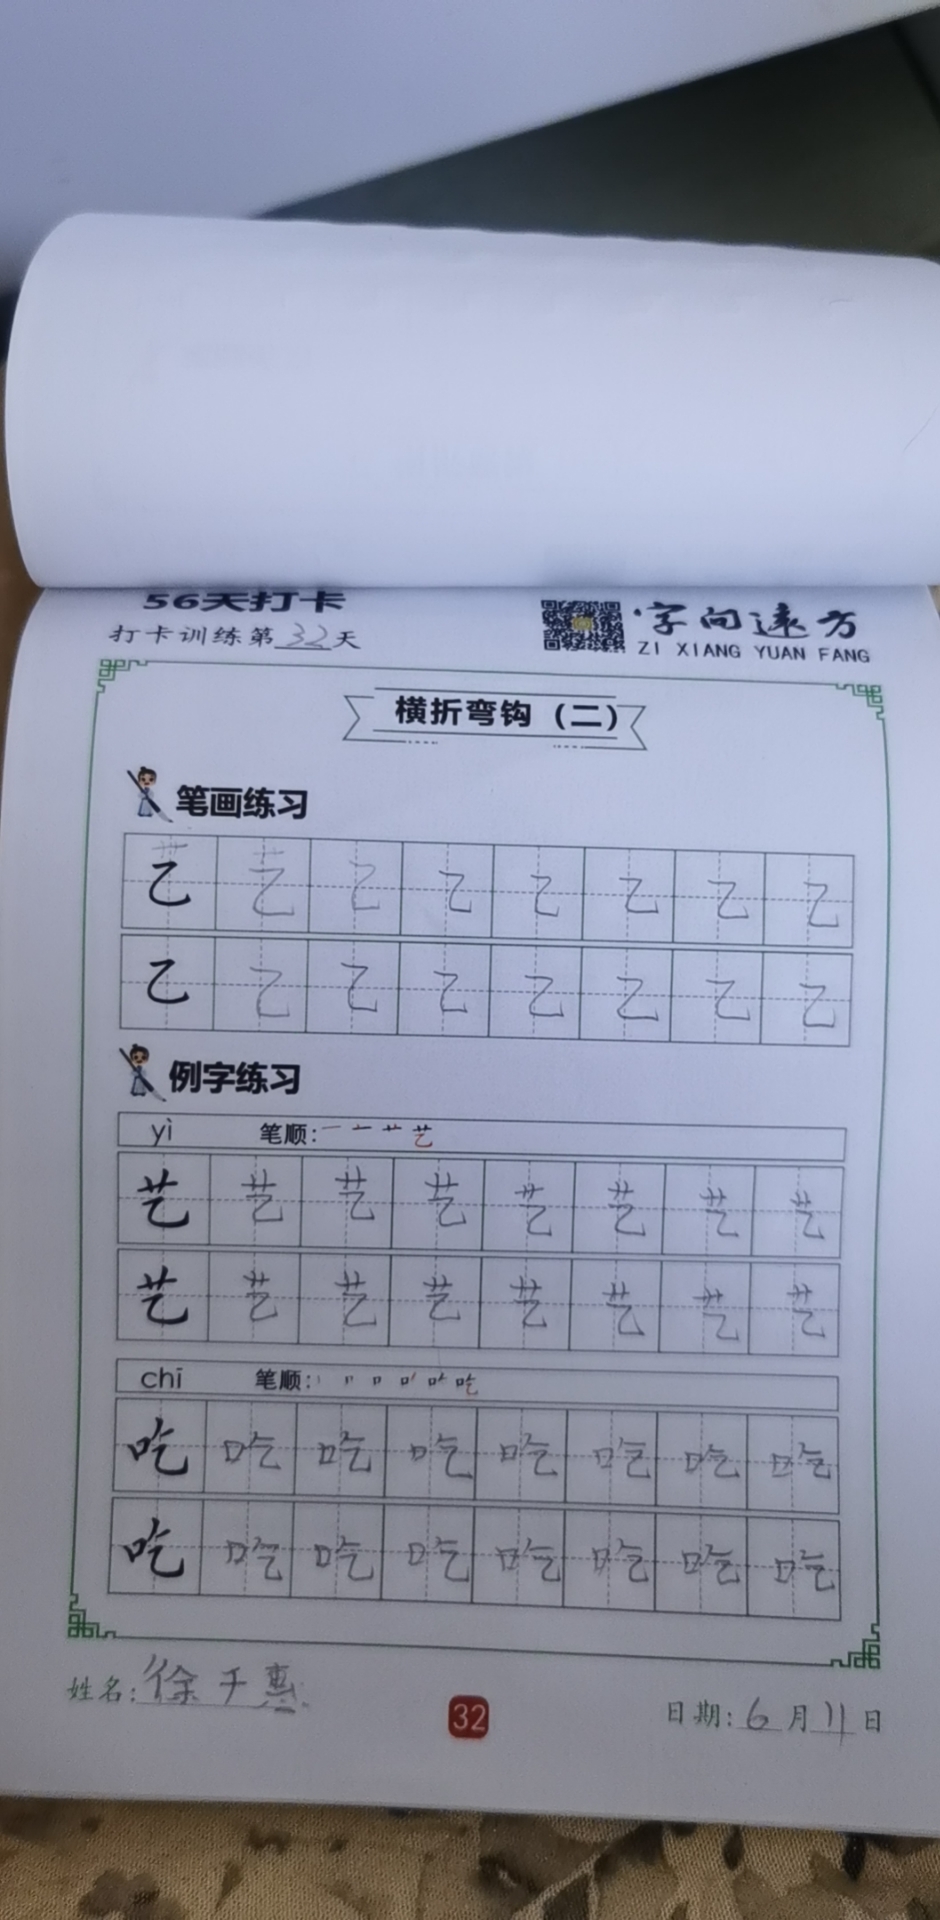 56天打卡
打卡训练第32天
字向远方
ZI XIANG YUAN FANG
横折弯钩（二）
笔画练习
乙 乙 乙 乙 乙 乙 乙 乙
乙 乙 乙 乙 乙 乙 乙 乙
例字练习
yì 笔顺:一 艹 艺
艺 艺 艺 艺 艺 艺 艺 艺
艺 艺 艺 艺 艺 艺 艺 艺
chī 笔顺: 吃
吃 吃 吃 吃 吃 吃 吃 吃
吃 吃 吃 吃 吃 吃 吃 吃
姓名:徐千惠
32
日期:6月11日